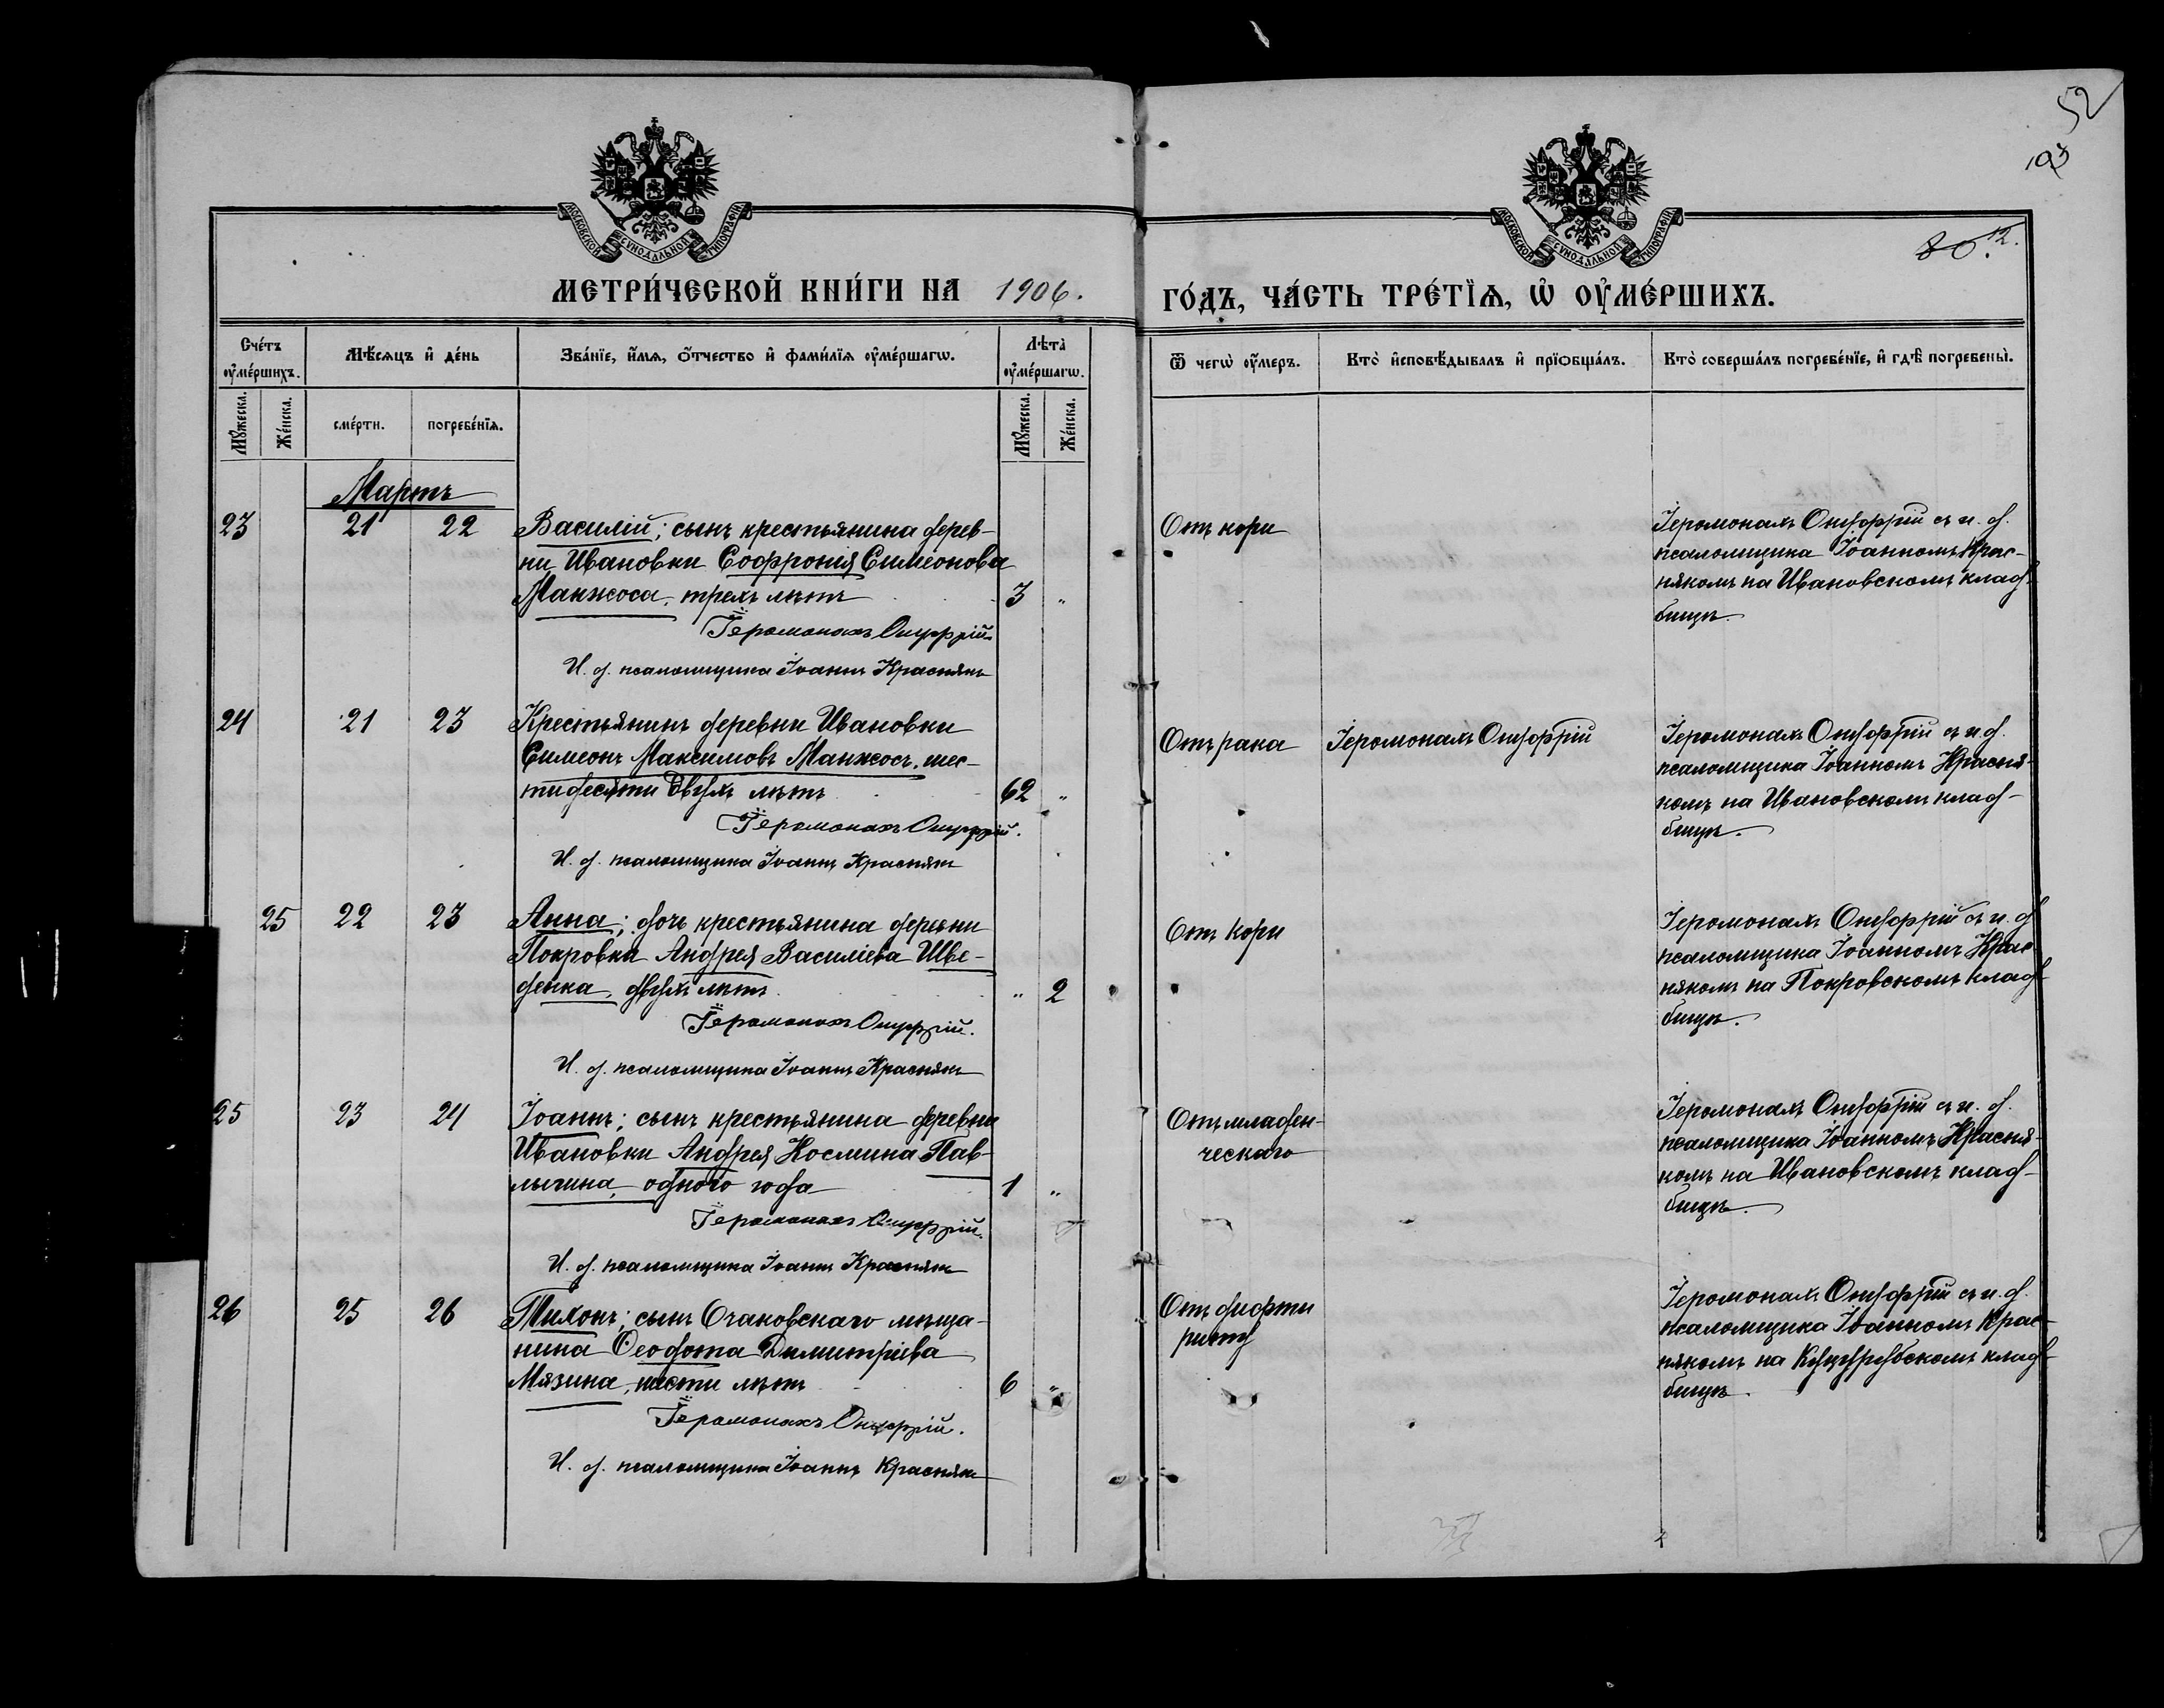 52
103
МОСКОВСКОЙ СѴНОДАЛЬНОЙ ТИПОГРАФІИ
МОСКОВСКОЙ СѴНОДАЛЬНОЙ ТИПОГРАФІИ
80 12.
МЕТРИ́ЧЕСКОЙ КНИ́ГИ НА 1906.
ГО́ДЪ, ЧА́СТЬ ТРЕ́ТЇѦ, Ѡ҆ ОУ҆МЕ́РШИХЪ.
Сче́тъ оу҆ме́ршихъ.
Мѣ́сѧцъ и҆ де́нь
Зва́нїе, и҆́мѧ, ѻ҆́тчество и҆ фами́лїѧ оу҆ме́ршагѡ.
Лѣта̀ оу҆ме́ршагѡ.
Ѿ чегѡ̀ оу҆́меръ.
Кто̀ и҆сповѣ́дывалъ и҆ прїѻбща́лъ.
Кто̀ соверша́лъ погребе́нїе, и҆ гдѣ̀ погребены̀.
Мꙋ́жеска.
Же́нска.
сме́рти.
погребе́нїѧ.
Мꙋ́жеска.
Же́нска.
Мартъ
23 21 22 Василій; сынъ крестьянина дерев-
ни Ивановки Софронія Симеонова
Манжоса, трехъ лѣтъ 3 "
Іеромонахъ Онуфрій.
И. д. псаломщика Іоаннъ Краснякъ
Отъ кори
Іеромонахъ Онуфрій съ и. д.
псаломщика Іоанномъ Крас-
някомъ на Ивановскомъ клад-
бищѣ.
24 21 23 Крестьянинъ деревни Ивановки
Симеонъ Максимовъ Манжосъ, шес-
тидесяти двухъ лѣтъ 62 "
Іеромонахъ Онуфрій.
И. д. псаломщика Іоаннъ Краснякъ
Отъ рака Іеромонахъ Онуфрій
Іеромонахъ Онуфрій съ и. д.
псаломщика Іоанномъ Красня-
комъ на Ивановскомъ клад-
бищѣ.
25 22 23 Анна; дочь крестьянина деревни
Покровки Андрея Василіева Шве-
денка, двухъ лѣтъ " 2
Іеромонахъ Онуфрій.
И. д. псаломщика Іоаннъ Краснякъ
Отъ кори
Іеромонахъ Онуфрій съ и. д.
псаломщика Іоанномъ Крас-
някомъ на Покровскомъ клад-
бищѣ.
25 23 24 Іоаннъ; сынъ крестьянина деревни
Ивановки Андрея Космина Пав-
лычина, одного года 1 "
Іеромонахъ Онуфрій.
И. д. псаломщика Іоаннъ Краснякъ
Отъ младен-
ческаго
Іеромонахъ Онуфрій съ и. д.
псаломщика Іоанномъ Красня-
комъ на Ивановскомъ клад-
бищѣ.
26 25 26 Тихонъ; сынъ Очаковскаго мѣща-
нина Ѳеодота Димитріева
Мязина, шести лѣтъ 6 "
Іеромонахъ Онуфрій.
И. д. псаломщика Іоаннъ Краснякъ
Отъ дифти
риту
Іеромонахъ Онуфрій съ и. д.
псаломщика Іоанномъ Крас-
някомъ на Куцурубскомъ клад-
бищѣ.